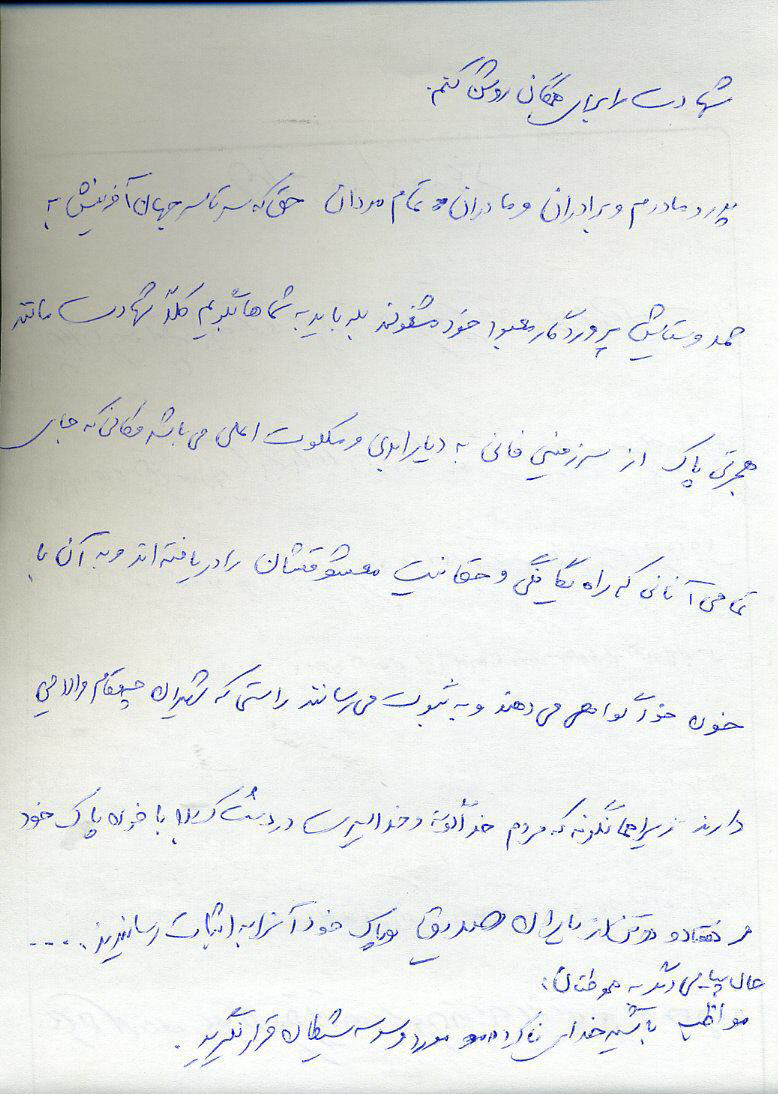 شهادت را برای همگانی روشن کنم.
پدر و مادرم و برادران و مادران و تمام مردان حق که سرتاسر جهان آفرینش به
حمد و ستایش پروردگار معبود خود مشغولند بله باید به شماها بگویم کلاً شهادت مانند
هجرتی پاک از سرزمینی فانی به دیار ابدی و ملکوت اعلی می باشد مکانی که جای
تمامی آنانی که راه یگانگی و حقانیت معشوقشان را دریافته اند و به آن با
خون خود گواهی می دهند و به ثبوت می رسانند راستی که شهیدان چه مقام والایی
دارند زیرا همانگونه که مردم خداگونه و خداپرست در دشت کربلا با خون پاک خود
و هفتاد و دو تن از یاران صدیق و پاک خود آنرا به اثبات رسانیدند....
حال پیامی دیگر به هموطنان:
مواظب باشید خدای ناکرده مورد وسوسه شیطان قرار نگیرید.